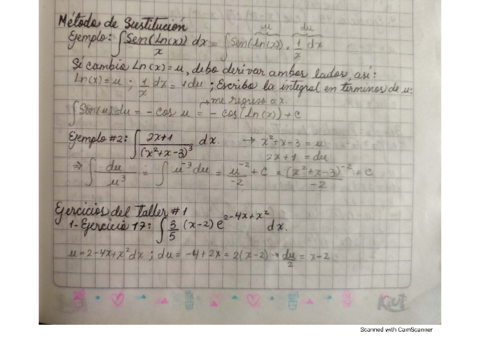 Método de Sustitución
u du
Ejemplo: ∫ Sen(Ln(x))/x dx = ∫ Sen(Ln(x)) · 1/x dx
Si cambio Ln(x) = u, debo derivar ambos lados, así:
Ln(x) = u ; 1/x dx = 1 du ; Escribo la integral en términos de u:
→ me regreso a x.
∫ Sen(u) du = - cos u = - cos(Ln(x)) + C
Ejemplo #2: ∫ 2x+1/(x²+x-3)³ dx. → x²+x-3 = u
2x+1 = du
⇒ ∫ du/u³ = ∫ u⁻³ du = u⁻²/-2 + C = (x²+x-3)⁻²/-2 + C
Ejercicios del Taller #1
1- Ejercicio 17: ∫ 3/5 (x-2) e^(2-4x+x²) dx.
u = 2-4x+x² dx ; du = -4+2x = 2(x-2) → du/2 = x-2
Scanned with CamScanner